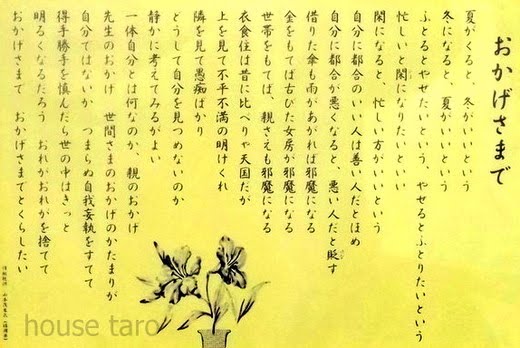 おかげさまで
夏がくると、冬がいいという
冬になると、夏がいいという
ふとるとやせたいという、やせるとふとりたいという
忙しいと閑になりたいといい
閑になると、忙しい方がいいという
自分に都合のいい人は善い人だとほめ
自分に都合が悪くなると、悪い人だと貶す
借りた傘も雨があがれば邪魔になる
金をもてば古びた女房が邪魔になる
世帯をもてば、親さえも邪魔になる
衣食住は昔に比べりゃ天国だが
上を見て不平不満の明けくれ
隣を見て愚痴ばかり
どうして自分を見つめないのか
静かに考えてみるがよい
一体自分とは何なのか、親のおかげ
先生のおかげ 世間さまのおかげのかたまりが
自分ではないか つまらぬ自我妄執をすてて
得手勝手を慎んだら世の中はきっと
明るくなるだろう おれがおれがを捨てて
おかげさまで おかげさまでとくらしたい
house taro